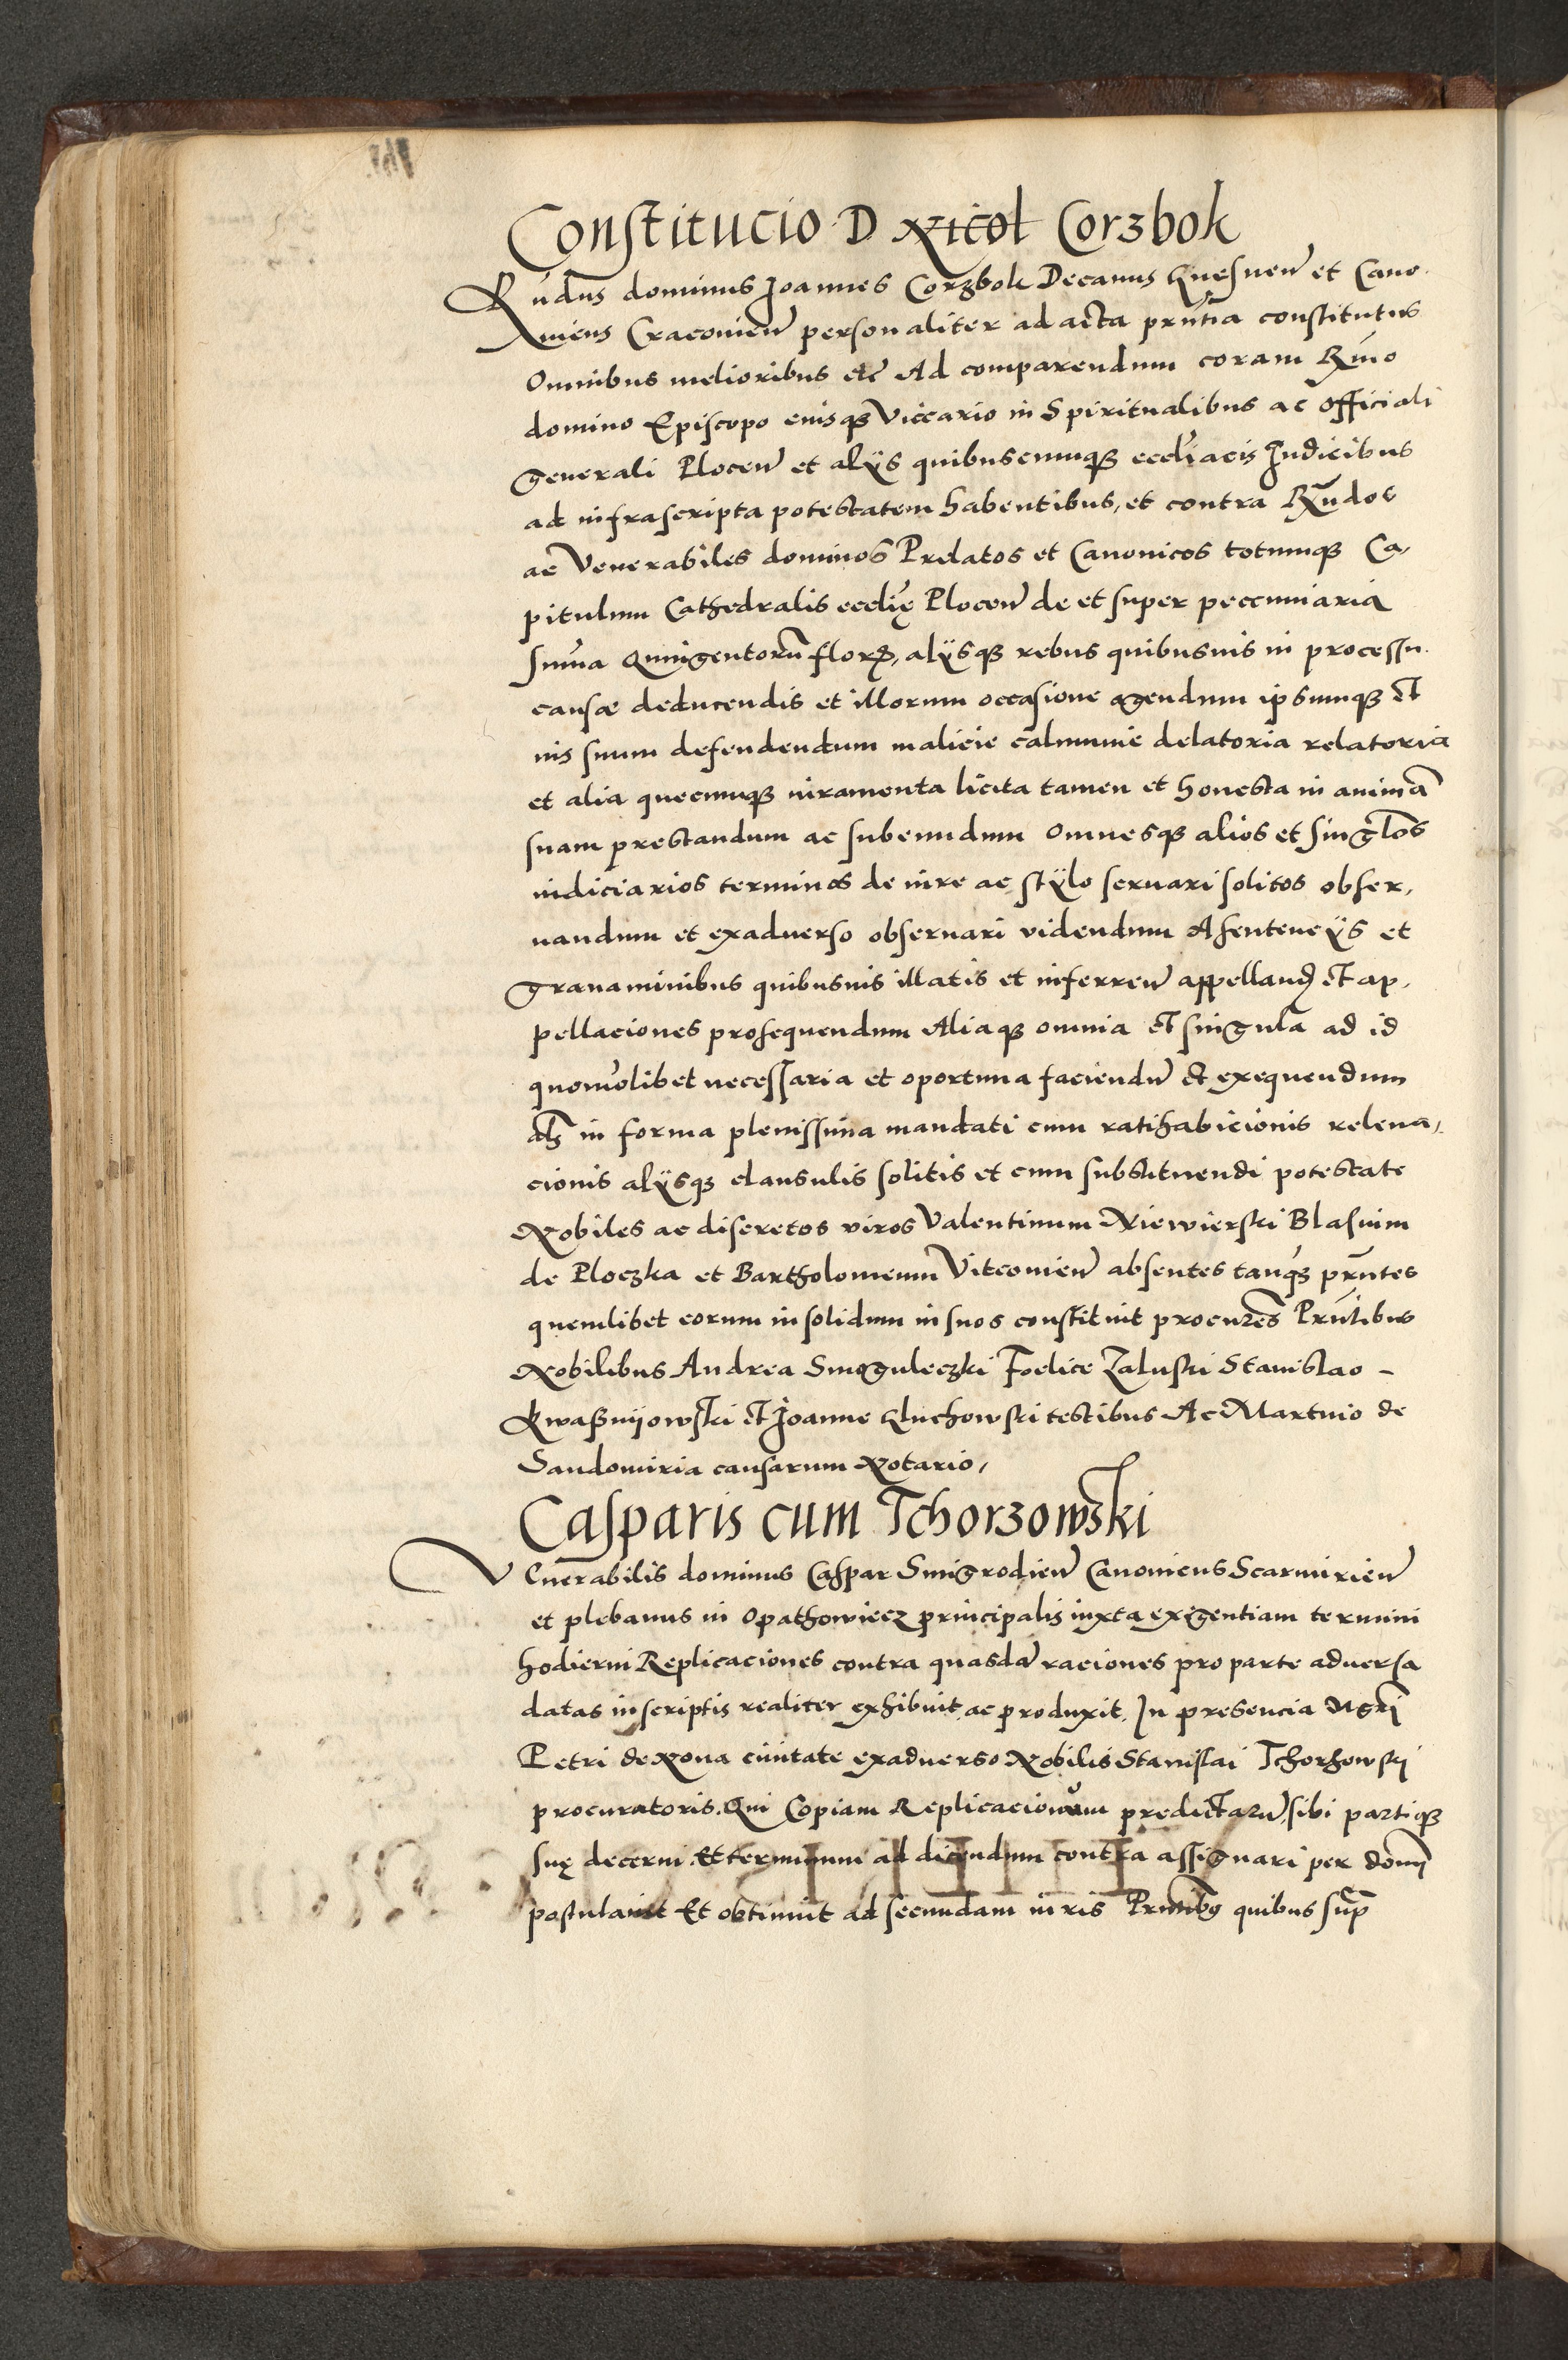 Constitucio D Nicol Corzbok
Rudus dominus Joannes Corzbok Decanus Gnesnen et Cano
nicus Cracovien personaliter ad acta prntia constitutus
Omnibus melioribus etc Ad comparendum coram Rmo
domino Episcopo eiusque Viccario in Spiritualibus ac Officiali
Generali Plocen et alijs quibuscumque eccliacis Judicibus
ad infrascripta potestatem habentibus, et contra Rndos
ac Venerabiles dominos Prelatos et Canonicos totumque Ca,
pitulum Cathedralis ecclię Plocen de et super peccuniaria
suma Quingentoru flor, alijsque rebus quibusuis in processu
causæ deducendis et illorum occasione agendum ipsumque et
ius suum defendendum malicie calumnie delatoria relatoria
et alia quecumque iuramenta licita tamen et honesta in animā
suam prestandum ac subeundum Omnesque alios et singlos
iudiciarios terminos de iure ac stylo seruari solitos obser,
uandum et exaduerso obseruari videndum A sentencijs et
Grauaminibus quibusuis illatis et inferren appelland et ap,
pellaciones prosequendum Aliaque omnia et singula ad id
quomolibet necessaria et oportuna faciendu et exequendum
als in forma plenissima mandati cum ratihabicionis releua,
cionis alijsque clausulis solitis et cum substituendi potestate
Nobiles ac discretos viros Valentinum Niewierski Blasium
de Ploczka et Bartholomeum Vitcovien absentes tanque prntes
quemlibet eorum in solidum in suos constituit procures Prntibus
Nobilibus Andrea Smoguleczki Foelice Zaluski Stanislao -
Kwaßnijowski et Joanne Gluchowski testibus Ac Martino de
Sandomiria causarum Notario,
Casparis cum Tchorzowski
Venerabilis dominus Caspar Smigrodien Canonicus Scarmirien
et plebanus in Opathowiecz principalis iuxta exigentiam termini
hodierni Replicaciones contra quasda raciones pro parte aduersa
datas in scriptis realiter exhibuit ac produxit, In presencia Mgri
Petri de Noua ciuitate exaduerso Nobilis Stanislai Tchorhowski
procuratoris. Qui Copiam Replicacionum predictaru, sibi partique
suę decerni Et terminum ad dicendum contra assignari per domi
postulauit Et obtinuit ad secundam iuris Prntibus quibus sup